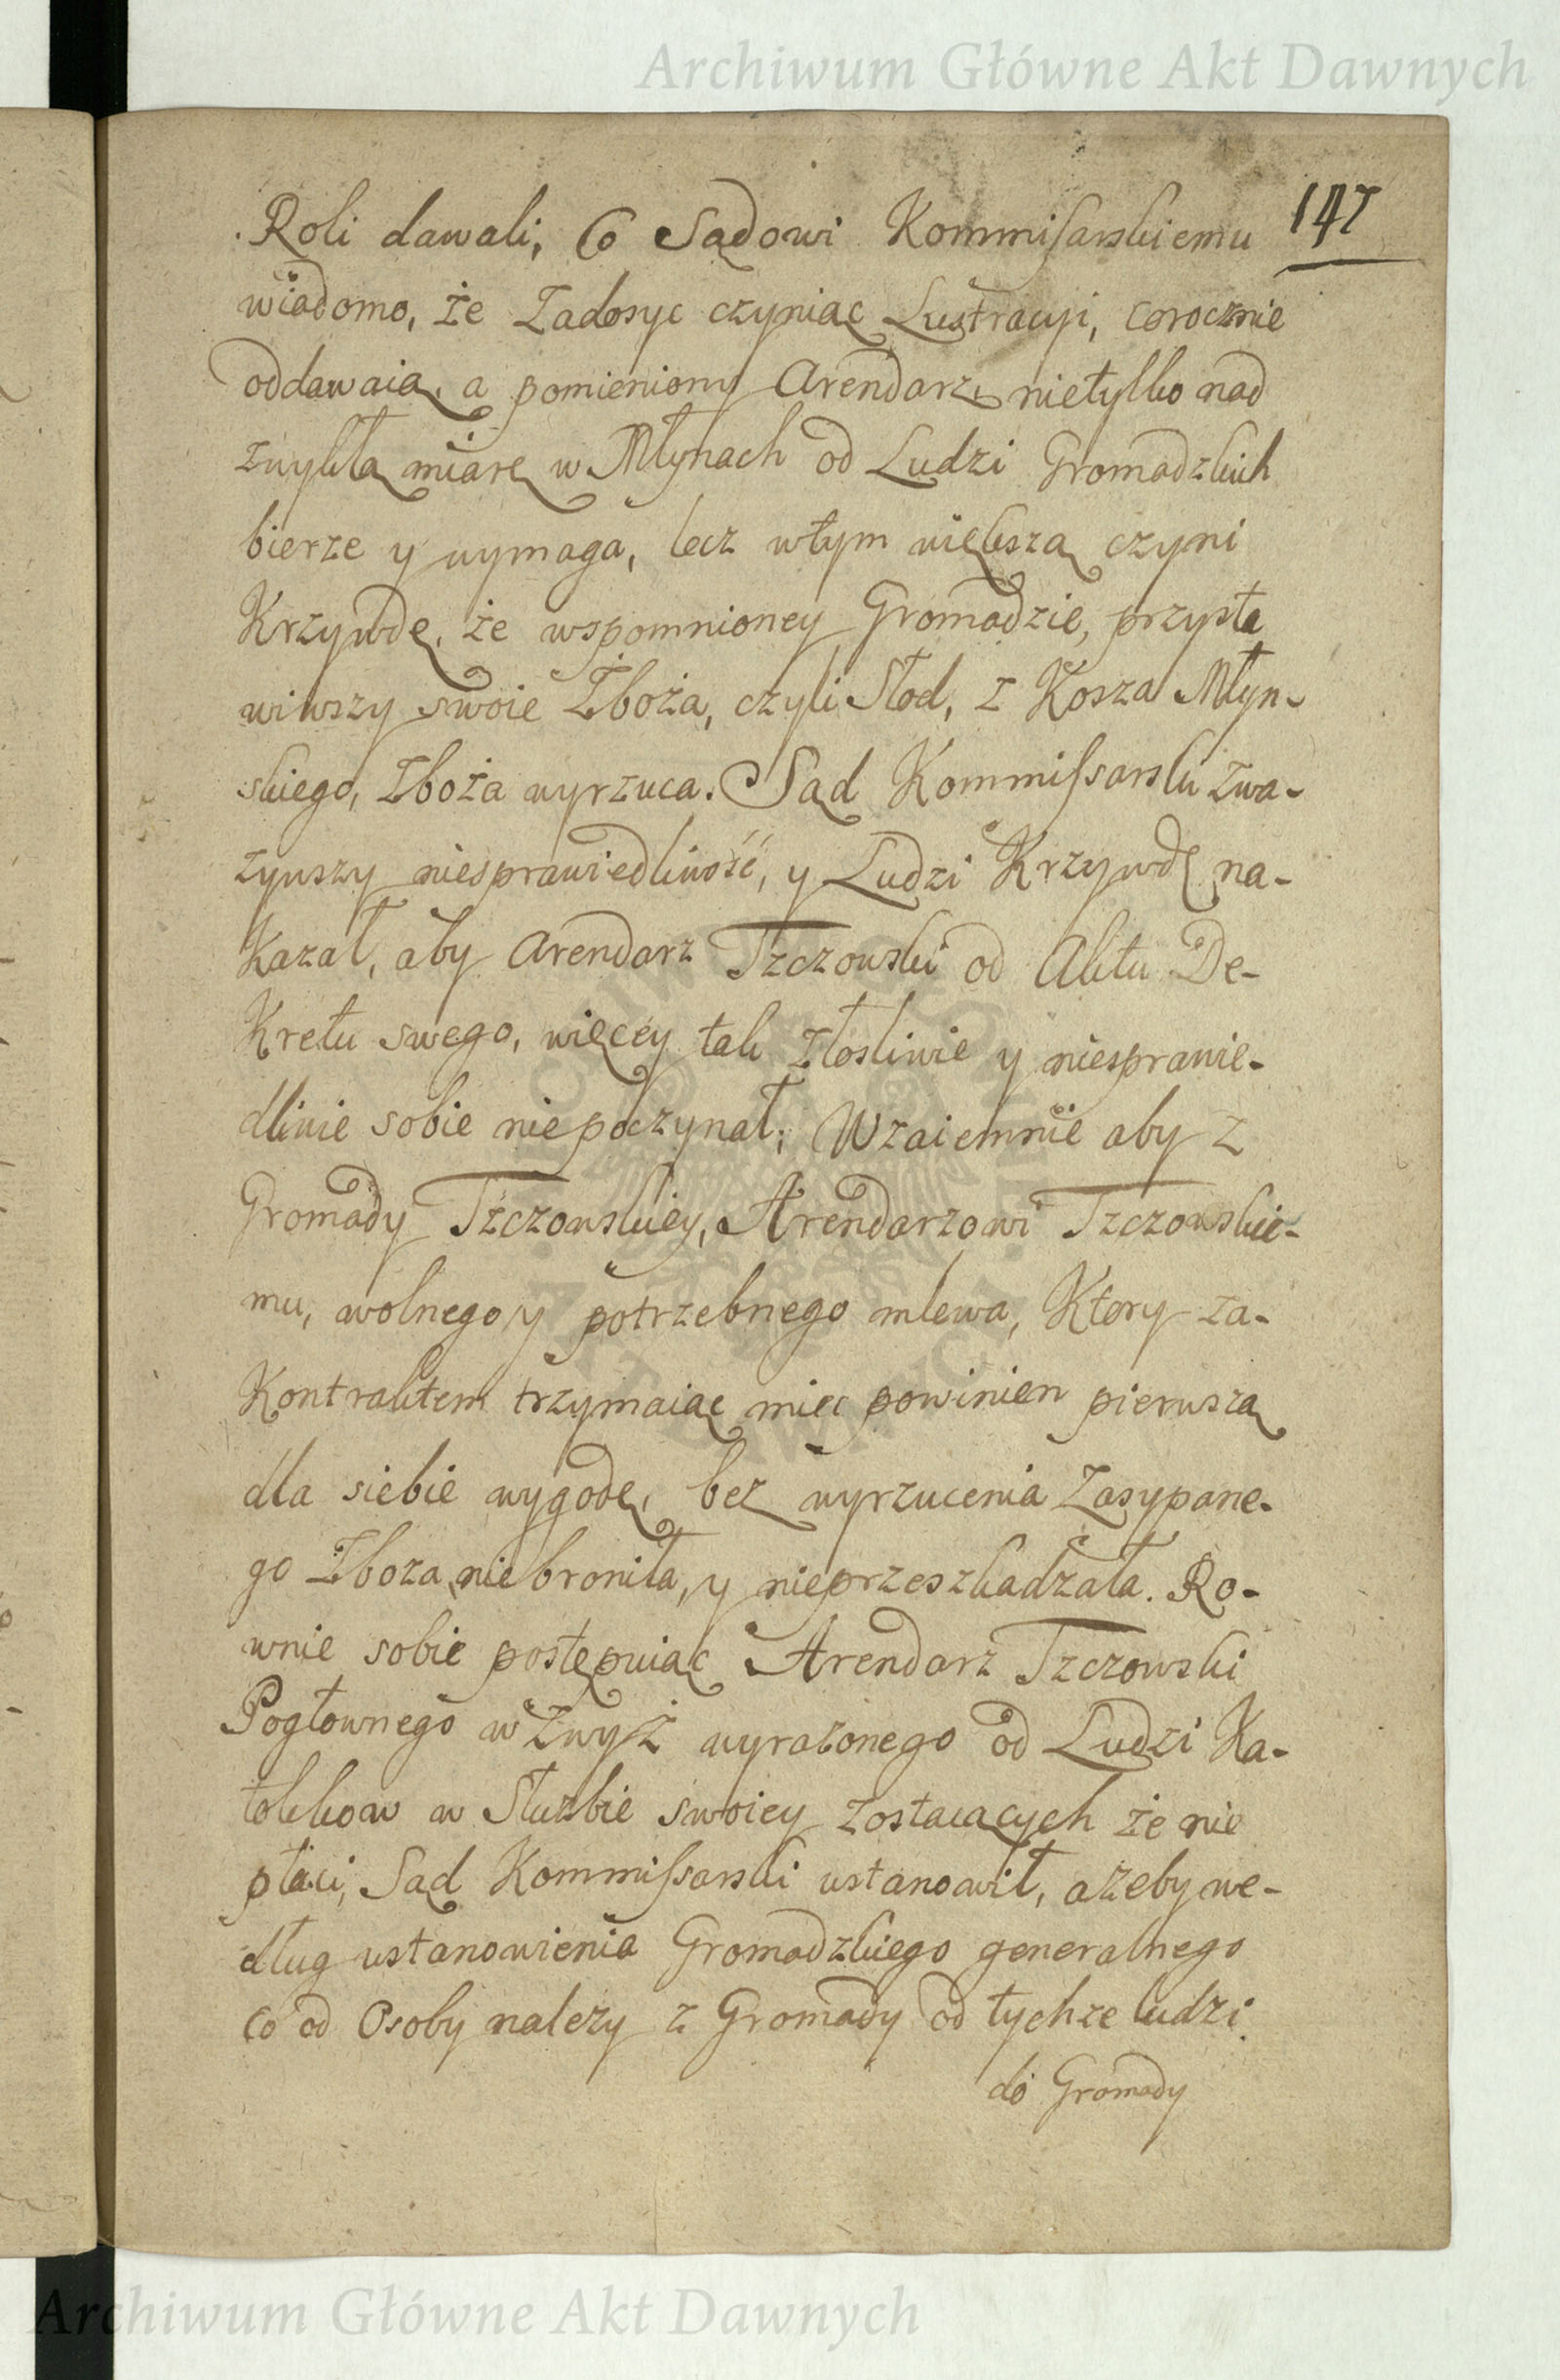 Archiwum Główne Akt Dawnych
147
Roli dawali, Co Sądowi Kommissarskiemu
wiadomo, że Zadosyc czyniąc Lustracyi, corocznie
oddawaią, a pomieniony Arendarz, nietylko nad
zwykłą miarę w Młynach od Ludzi Gromadzkich
bierze y wymaga, lecz wtym większą czyni
Krzywdę, że wspomnioney Gromadzie, przysta
wiwszy swoie Zboża, czyli Słod, z Kosza Młyn-
skiego, Zboża wyrzuca. Sąd Kommissarski zwa-
zywszy niesprawiedliwość, y Ludzi Krzywdę na-
kazał, aby Arendarz Tzczowski od Aktu De-
Kretu swego, więcey tak złosliwie y niesprawie-
dliwie sobie niepoczynał; Wzaiemnie aby z
Gromady Tżczowskiey, Arendarzowi Tzczowskie-
mu, wolnego y potrzebnego mlewa, Ktory za-
Kontraktem trzymaiąc miec powinien pierwszą
dla siebie wygodę, bez wyrzucenia Zasypane-
go Zboza, niebroniła, y nieprzeszkadzała. Ro-
wnie sobie postępuiąc Arendarz Tzczowski
Pogłownego w Zwyż wyrazonego od Ludzi Ka-
tolikow w Służbie swoiey zostaiących że nie
płaci, Sąd Kommissarski ustanowił, ażeby we-
dług ustanowienia Gromadzkiego generalnego
co od Osoby nalezy z Gromady od tychze ludzi
do Gromady
Archiwum Główne Akt Dawnych